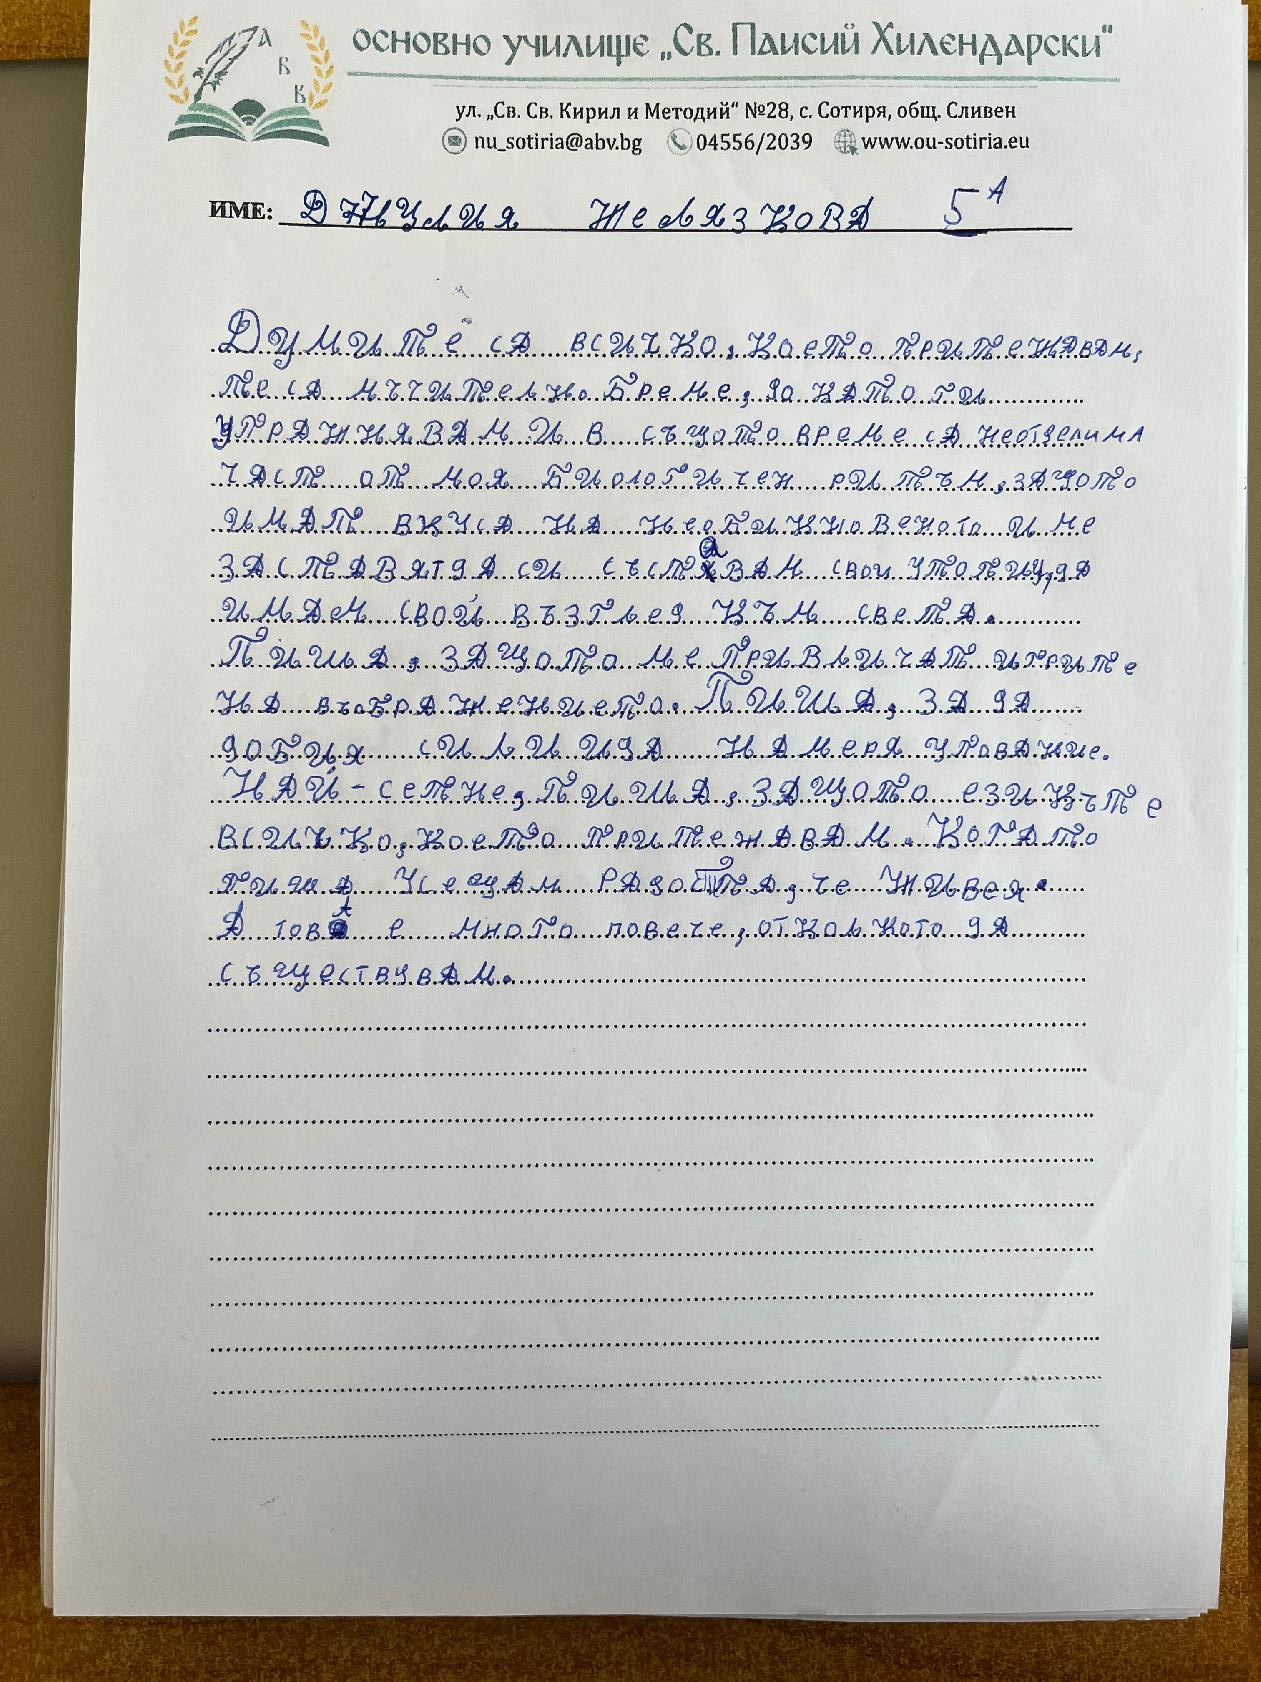 А
Б
В
ОСНОВНО УЧИЛИЩЕ „СВ. ПАИСИЙ ХИЛЕНДАРСКИ“
ул. „Св. Св. Кирил и Методий“ №28, с. Сотиря, общ. Сливен
nu_sotiria@abv.bg 04556/2039 www.ou-sotiria.eu
ИМЕ: ЖЕЛЯЗКОВА 5 А
Думите са всичко, което притежавам,
те са мъчително бреме, до като ги
упражнявам и в същото време са неотделима
част от моя биологичен ритъм, защото
имат вкуса на необикновеното и ме
заставят да си съставам свои утопии, да
имаем свой възглед към света.
Пиша, защото ме привличат игрите
на въображението. Пиша, за да
добия сили и да намеря упование.
Най-сетне, пиша, защото езикъте
всичко, което притежавам. Когато
пиша усещам радостта, че живея.
А това е много повече, отколкото да
съществувам.